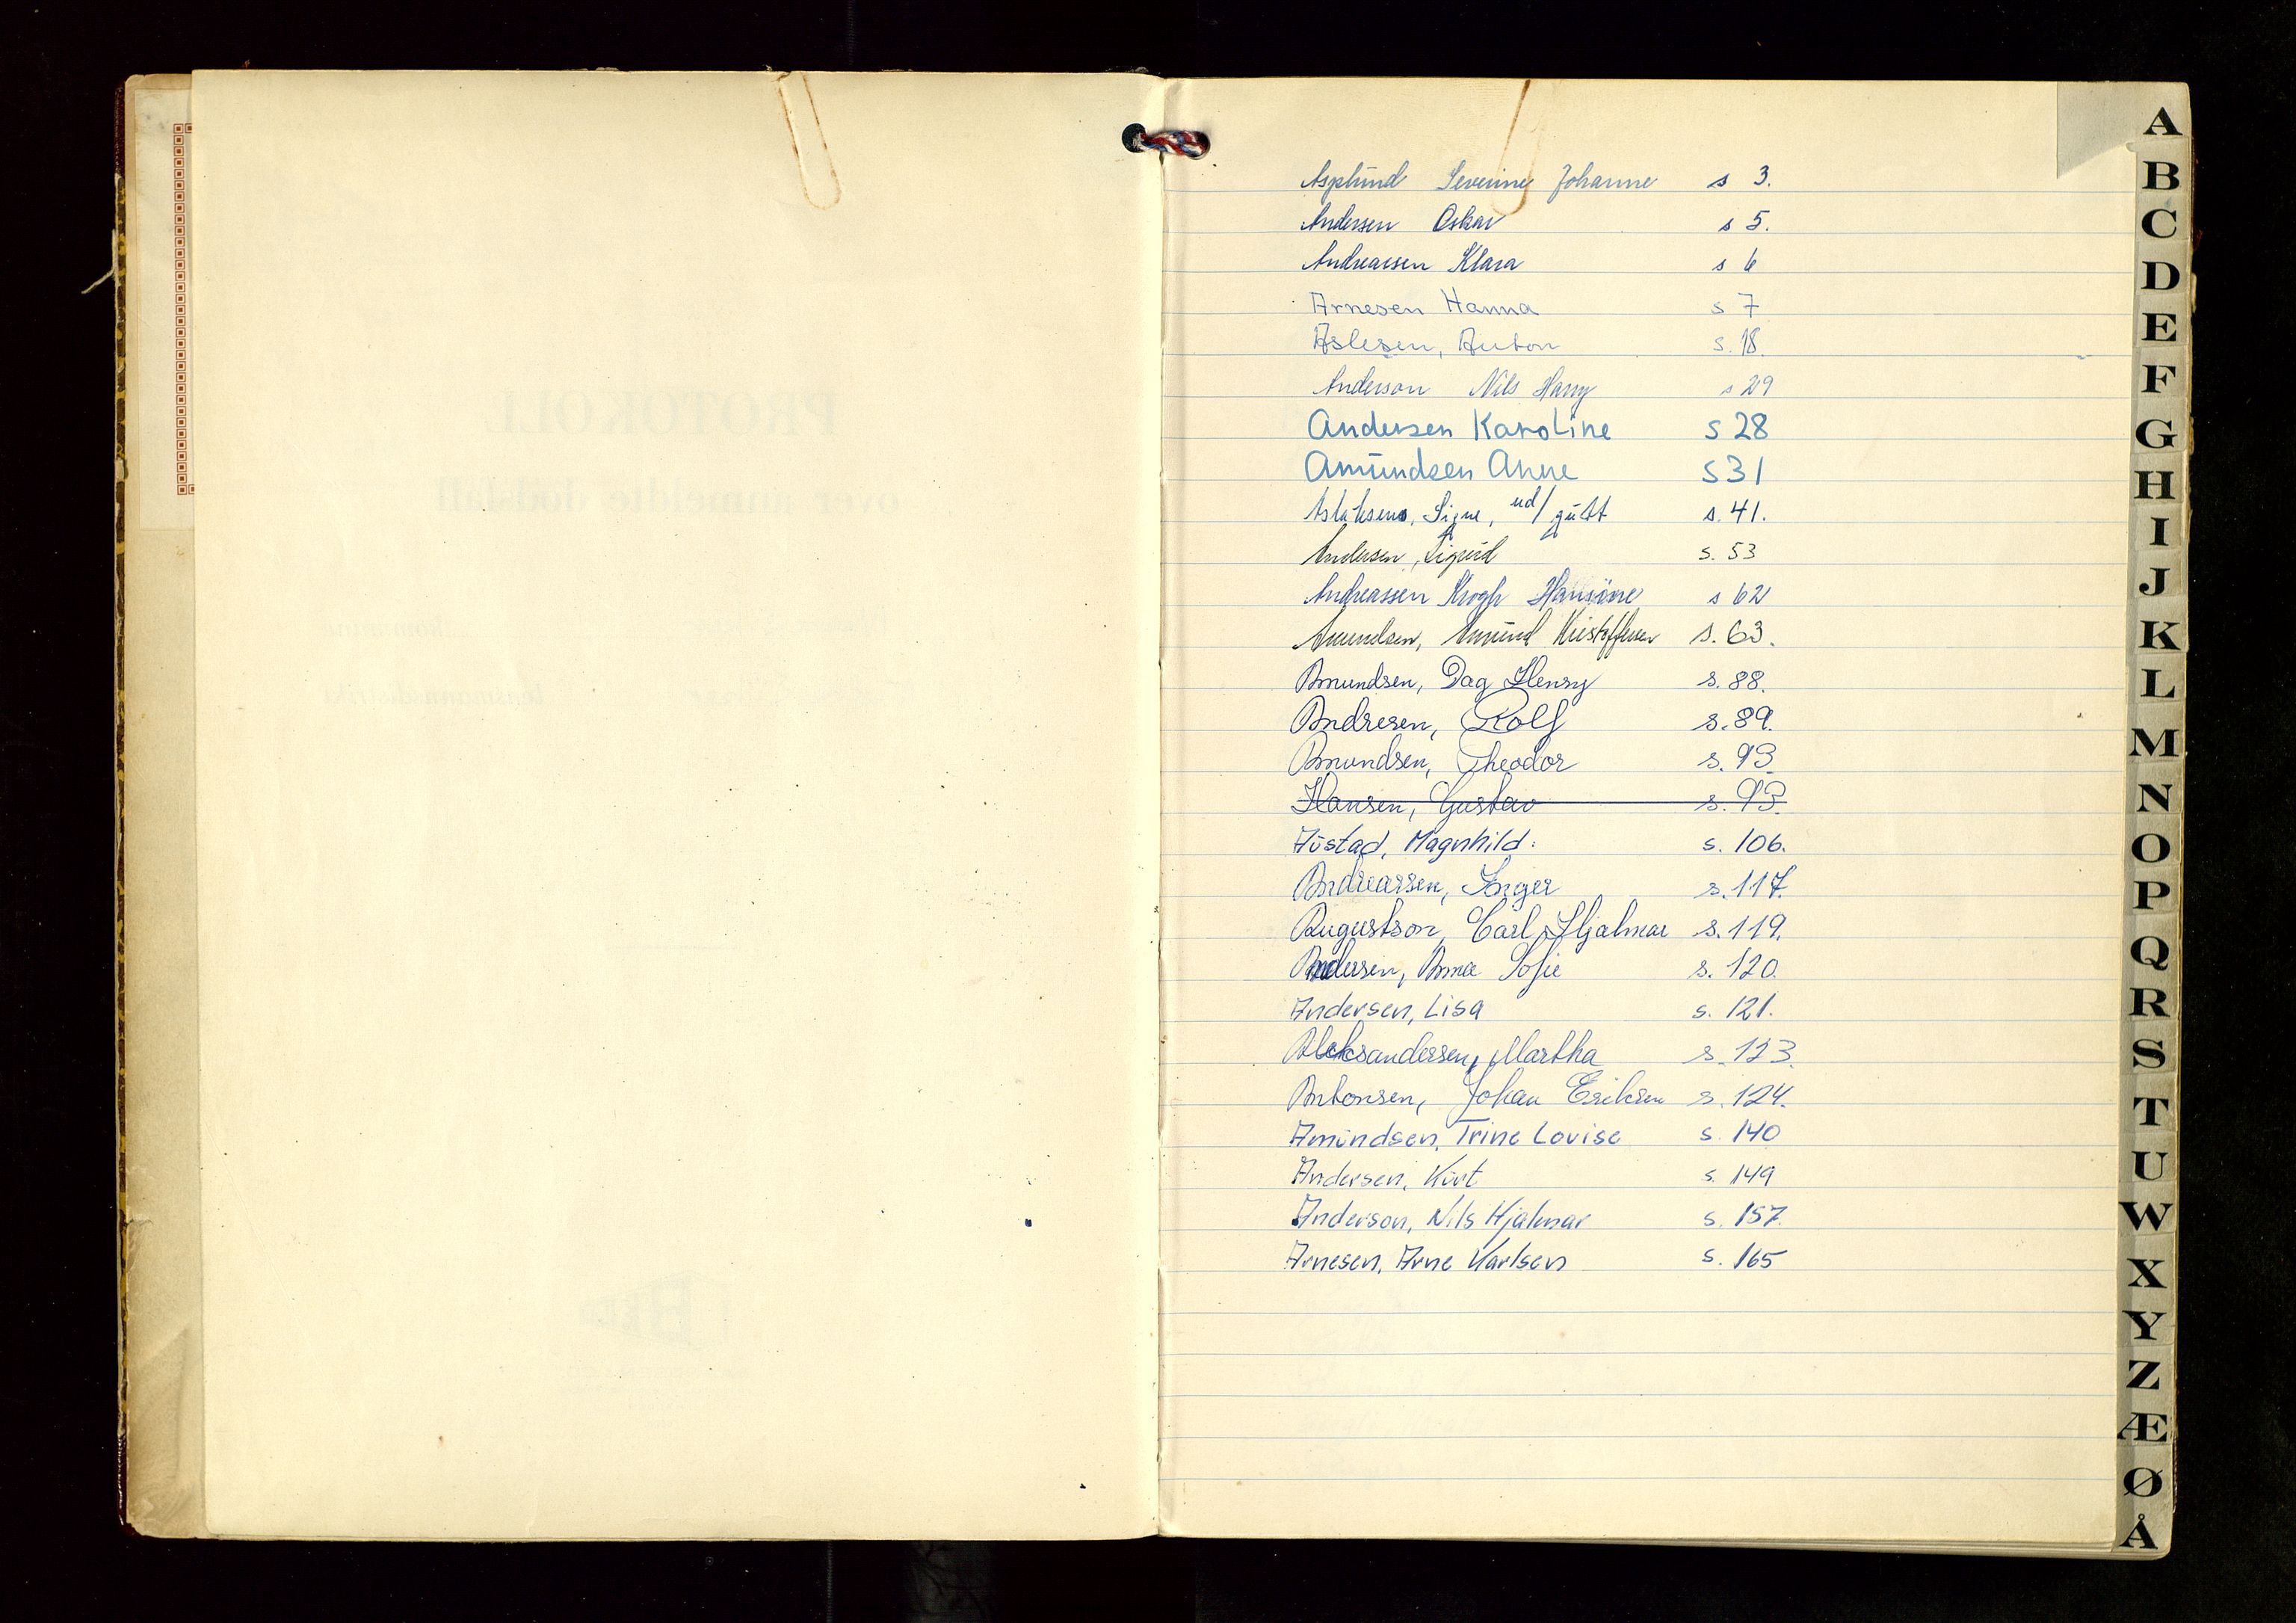 Asplund Severine Johanne s 3.
Andersen Oskar s 5.
Andreassen Klara s 6
Arnesen Hanna s 7
Aslesen, Anton s. 18.
Anderson Nils Harry s 29
Andersen Karoline s 28
Amundsen Anne s 31
Aslaksens, Signe, ud/ gutt s. 41.
Andersen, Sigurd s. 53
Andreassen Krogh s 62
Amundsen, Amund Kristoffersen s. 63.
Amundsen, Dag Henry s. 88.
Andresen, Rolf s. 89.
Amundsen, Theodor s. 93
Hansen, Gustav s. 93.
Austad, Magnhild: s. 106.
Andreassen, Inger s. 117.
Augustson, Carl Hjalmar s. 119.
Andersen, Anna Sofie s. 120.
Andersen, Lisa s. 121.
Aleksandersen, Martha s. 123.
Antonsen, Johan Eriksen s. 124.
Amundsen, Trine Lovise s. 140
Andersen, Kurt s. 149
Anderson, Nils Hjalmar s. 157.
Arnesen, Arne Karlsen s. 165
A
B
C
D
E
F
G
H
I
J
K
L
M
N
O
P
Q
R
S
T
U
W
X
Y
Z
Æ
Ø
Å